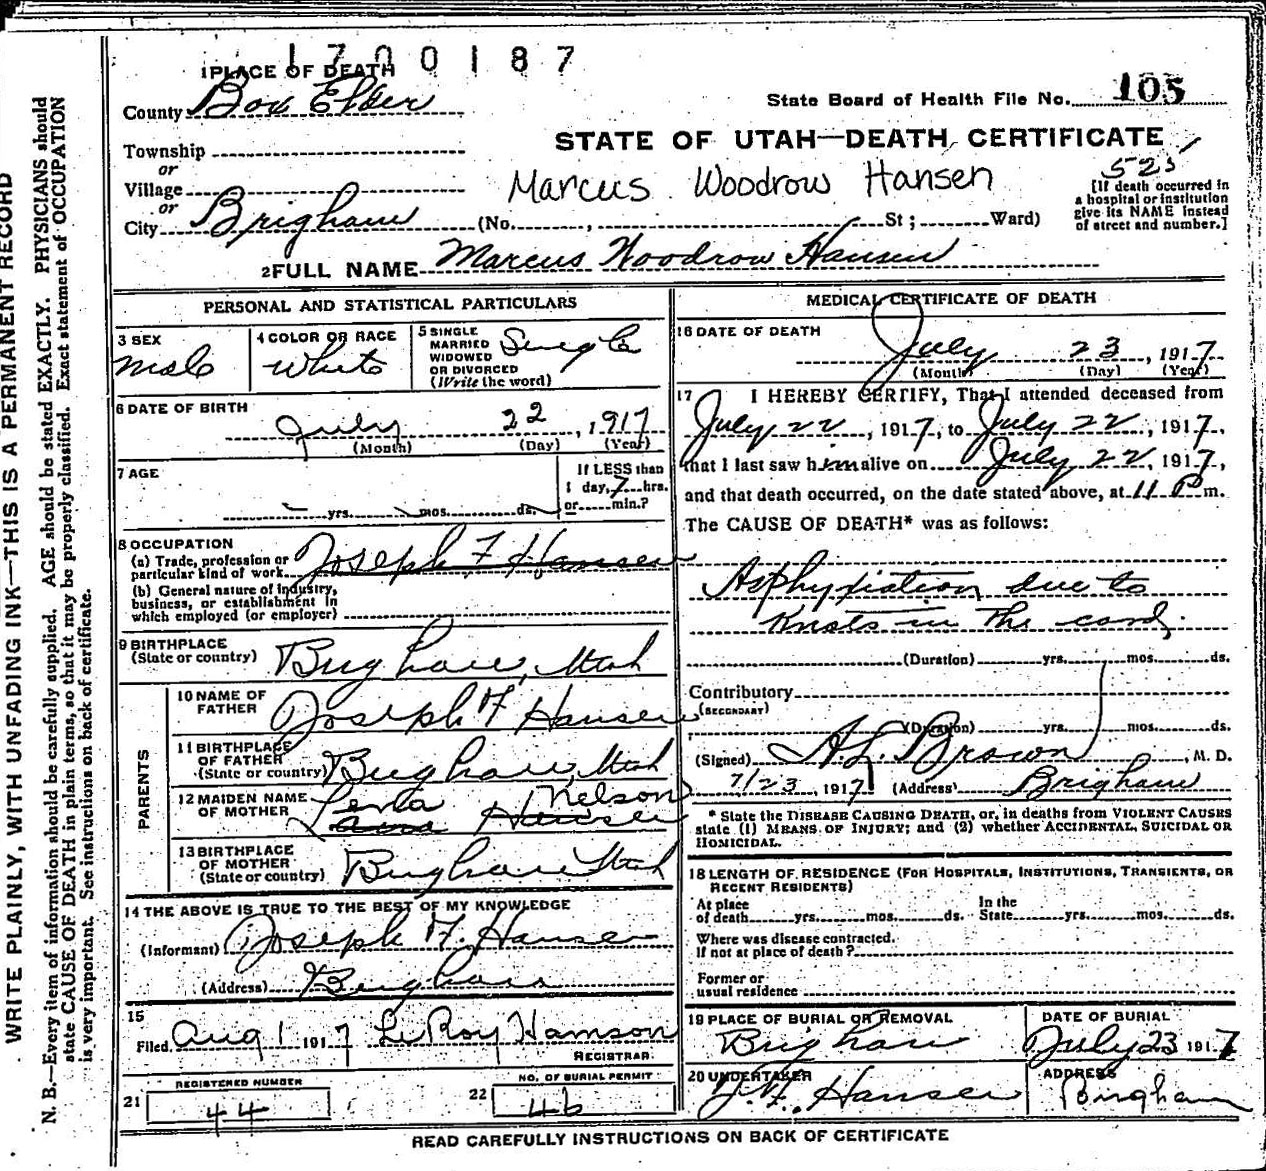 1700187
1 PLACE OF DEATH
County Box Elder
State Board of Health File No. 105
STATE OF UTAH—DEATH CERTIFICATE
Township
or
Village
or
City Brigham (No. , St ; Ward)
Marcus Woodrow Hansen
525
[If death occurred in
a hospital or institution
give its NAME instead
of street and number.]
2 FULL NAME Marcus Woodrow Hansen
PERSONAL AND STATISTICAL PARTICULARS
3 SEX
Male
4 COLOR OR RACE
White
5 SINGLE
MARRIED
WIDOWED
OR DIVORCED
(Write the word)
Single
6 DATE OF BIRTH
July 22, 1917
(Month) (Day) (Year)
7 AGE
yrs. mos. ds.
If LESS than
1 day, 7 hrs.
or min.?
8 OCCUPATION
(a) Trade, profession or
particular kind of work Joseph F Hansen
(b) General nature of industry,
business, or establishment in
which employed (or employer)
9 BIRTHPLACE
(State or country) Brigham, Utah
PARENTS
10 NAME OF
FATHER Joseph F Hansen
11 BIRTHPLACE
OF FATHER
(State or country) Brigham, Utah
12 MAIDEN NAME
OF MOTHER Lena Nelson
Hansen
13 BIRTHPLACE
OF MOTHER
(State or country) Brigham Utah
14 THE ABOVE IS TRUE TO THE BEST OF MY KNOWLEDGE
(Informant) Joseph F. Hansen
(Address) Brigham
15
Filed Aug 1 1917 LeRoy Hamson
REGISTRAR
REGISTERED NUMBER
21 44
NO. OF BURIAL PERMIT
22 46
MEDICAL CERTIFICATE OF DEATH
16 DATE OF DEATH
July 23, 1917
(Month) (Day) (Year)
17 I HEREBY CERTIFY, That I attended deceased from
July 22, 1917, to July 22, 1917,
that I last saw him alive on July 22, 1917,
and that death occurred, on the date stated above, at 11 P m.
The CAUSE OF DEATH* was as follows:
Asphyxiation due to
Knots in the cord.
(Duration) yrs. mos. ds.
Contributory
(SECONDARY)
(Duration) yrs. mos. ds.
(Signed) A.L. Brown, M. D.
7/23, 1917 (Address) Brigham
* State the DISEASE CAUSING DEATH, or, in deaths from VIOLENT CAUSES
state (1) MEANS OF INJURY; and (2) whether ACCIDENTAL, SUICIDAL OR
HOMICIDAL.
18 LENGTH OF RESIDENCE (FOR HOSPITALS, INSTITUTIONS, TRANSIENTS, OR
RECENT RESIDENTS)
At place
of death yrs. mos. ds.
In the
State yrs. mos. ds.
Where was disease contracted.
if not at place of death?
Former or
usual residence
19 PLACE OF BURIAL OR REMOVAL
Brigham
DATE OF BURIAL
July 23 1917
20 UNDERTAKER
J. F. Hansen
ADDRESS
Brigham
READ CAREFULLY INSTRUCTIONS ON BACK OF CERTIFICATE
WRITE PLAINLY, WITH UNFADING INK—THIS IS A PERMANENT RECORD
N. B.—Every item of information should be carefully supplied. AGE should be stated EXACTLY. PHYSICIANS should
state CAUSE OF DEATH in plain terms, so that it may be properly classified. Exact statement of OCCUPATION
is very important. See instructions on back of certificate.